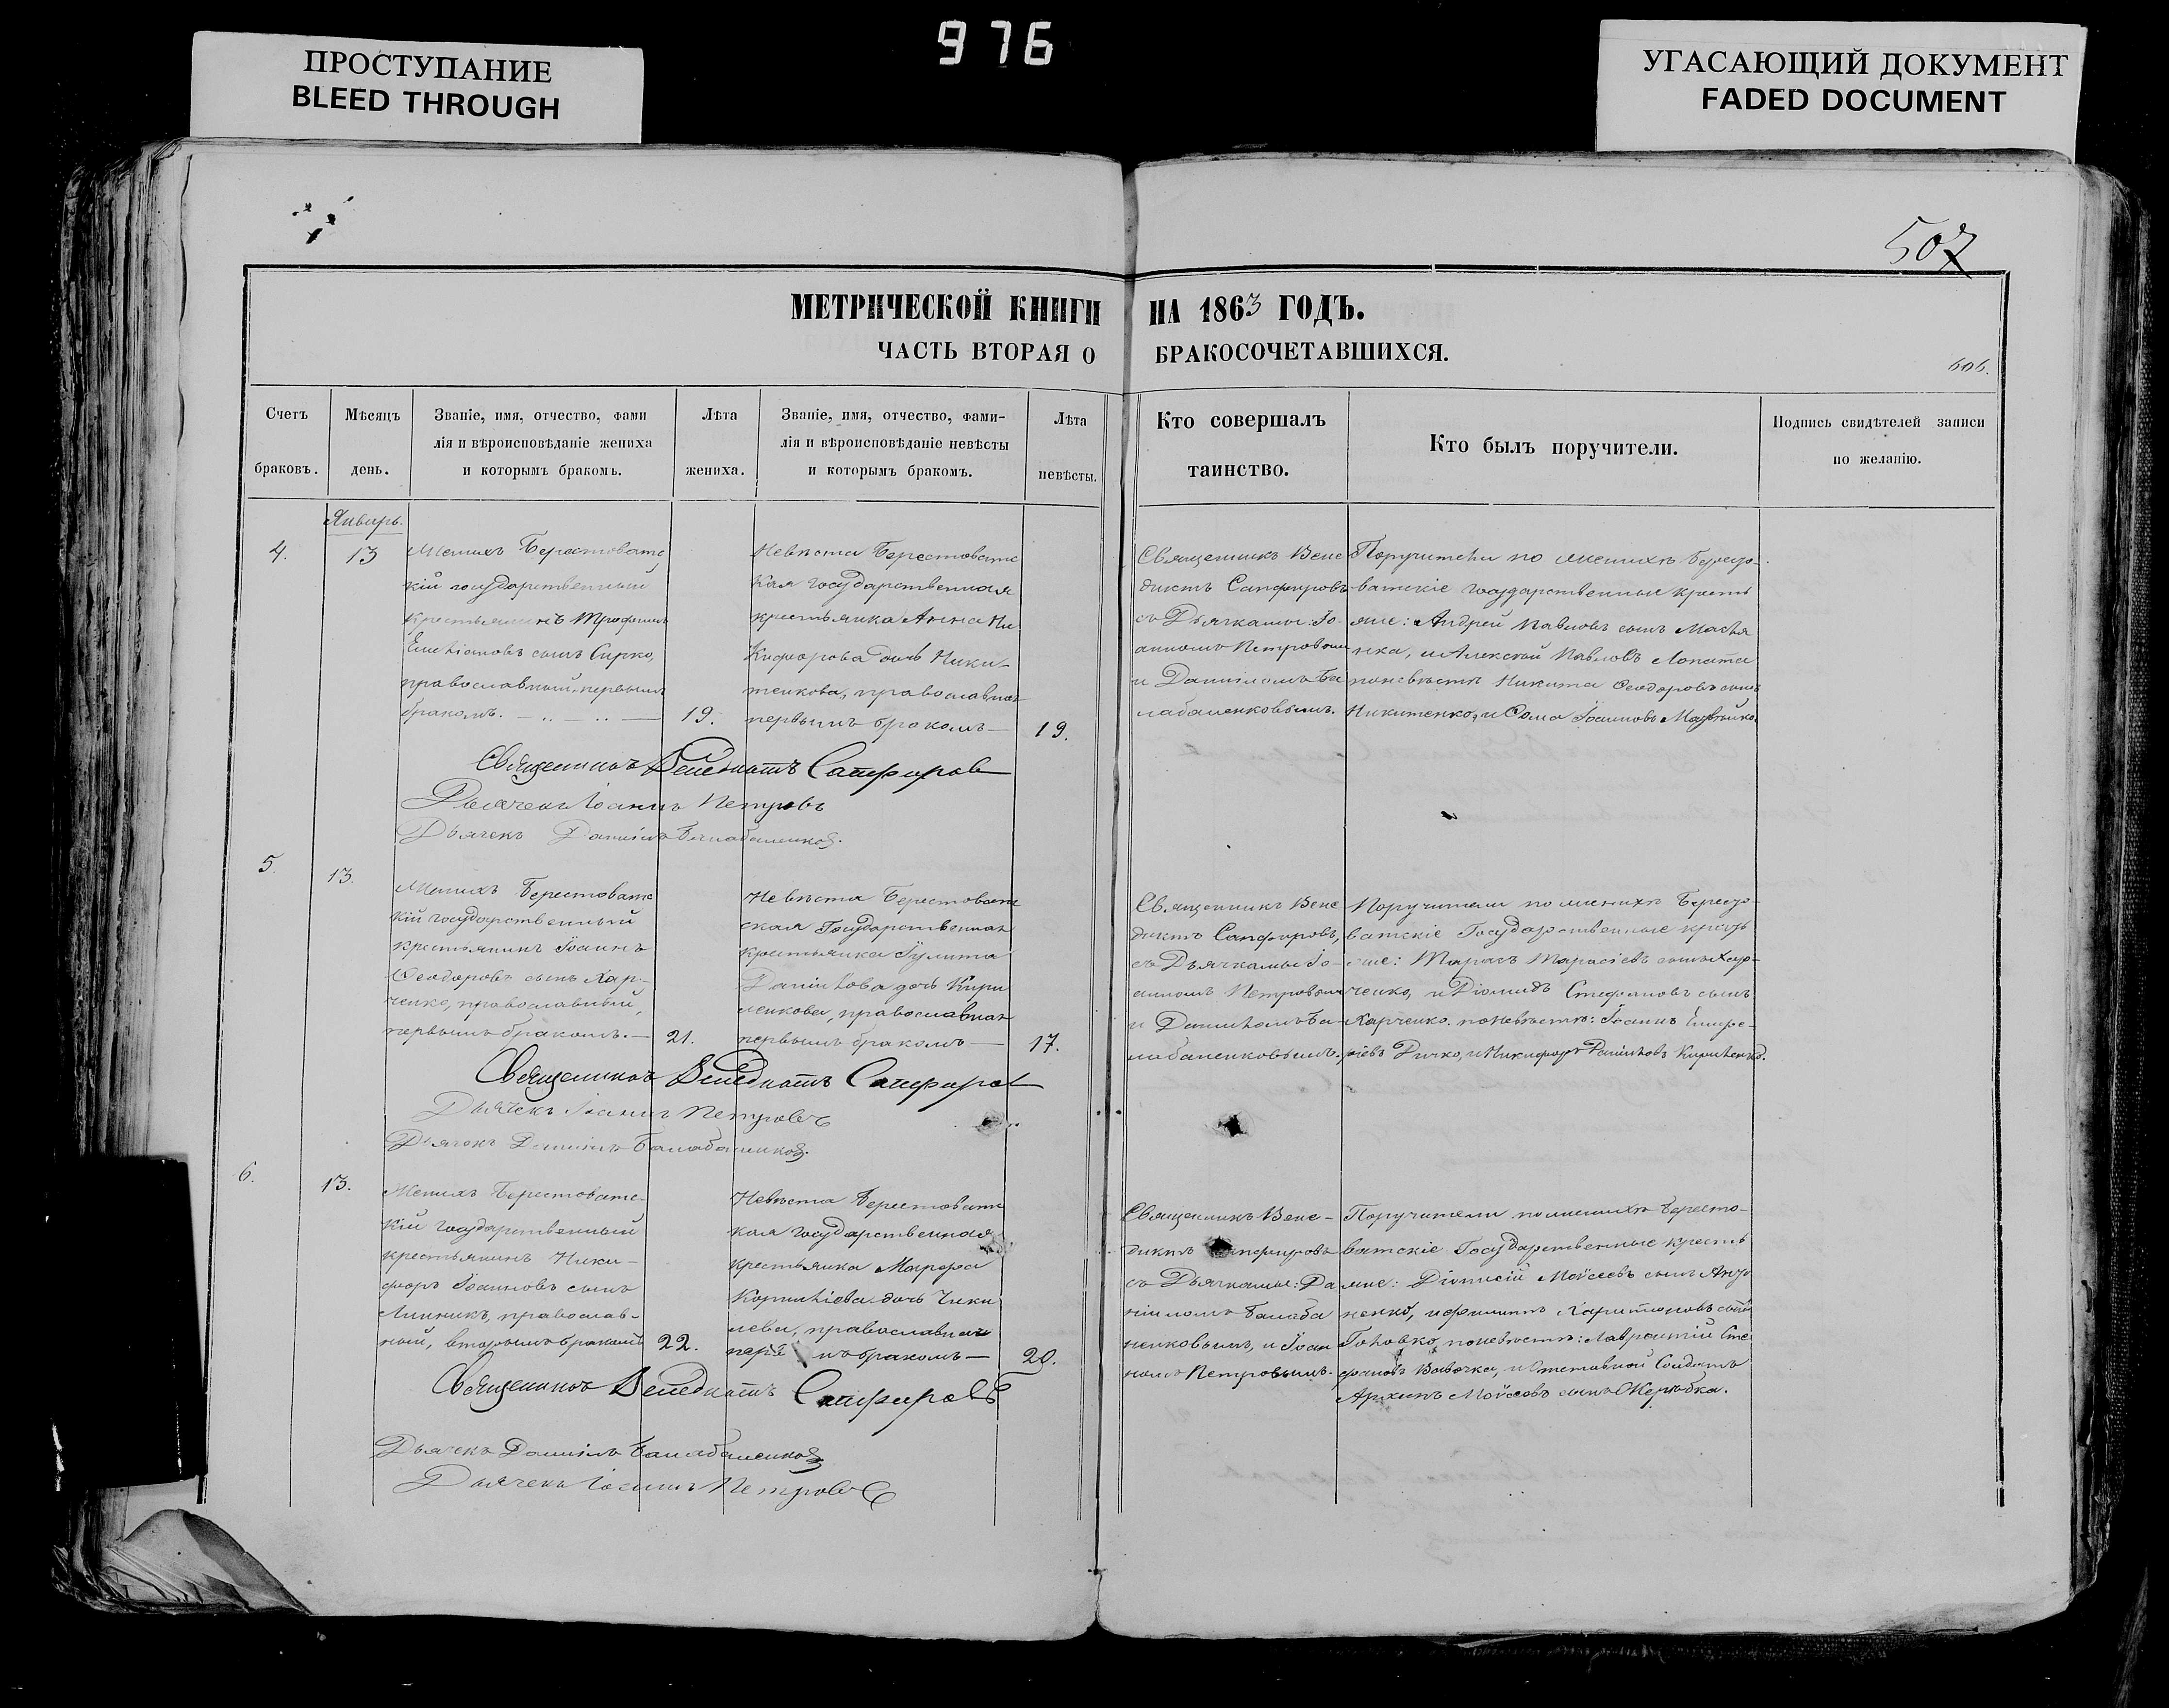 976
ПРОСТУПАНИЕ
BLEED THROUGH
УГАСАЮЩИЙ ДОКУМЕНТ
FADED DOCUMENT
507
МЕТРИЧЕСКОЙ КНИГИ НА 1863 ГОДЪ.
ЧАСТЬ ВТОРАЯ О БРАКОСОЧЕТАВШИХСЯ.
606.
Счетъ
браковъ.
Мѣсяцъ
день.
Званіе, имя, отчество, фами
лія и вѣроисповѣданіе жениха
и которымъ бракомъ.
Лѣта
жениха.
Званіе, имя, отчество, фами-
лія и вѣроисповѣданіе невѣсты
и которымъ бракомъ.
Лѣта
невѣсты.
Кто совершалъ
таинство.
Кто былъ поручители.
Подпись свидѣтелей записи
по желанію.
Январь.
4.
13
Женихъ Берестоватс
кій государственный
крестьянинъ Трофимъ
Емеліановъ сынъ Сирко,
православный, первымъ
бракомъ.
19.
Невѣста Берестоватс
кая государственная
крестьянка Анна Ни
кифорова дочь Ники-
тенкова, православная
первымъ бракомъ
19.
Священникъ Вене
диктъ Сапфировъ
съ Дьячками: Іо-
анномъ Петровымъ
и Даніиломъ Ба
лабаненковымъ.
Поручители по женихѣ Бересто-
ватскіе государственные кресть
яне: Андрей Павловъ сынъ
и Алексѣй Павловъ Лопата
по невѣстѣ Никита Ѳеодоровъ сынъ
Никитенко, и Ѳома Іоанновъ
Священникъ Венедиктъ Сапфировъ
Дьячекъ Іоаннъ Петровъ
Дьячекъ Даніилъ Балабаненковъ.
5.
13.
Женихъ Берестоватс
кій государственный
крестьянинъ Іоаннъ
Ѳеодоровъ сынъ Хар-
ченко, православный,
первымъ бракомъ.
21.
Невѣста Берестоват
ская Государственная
крестьянка Іулита
Даніилова дочь Кири
ленкова, православная
первымъ бракомъ
17.
Священникъ Вене
диктъ Сапфировъ,
съ Дьячками Іо-
анномъ Петровымъ
и Даніиломъ Ба-
лабаненковымъ.
Поручители по женихѣ Бересто-
ватскіе Государственные кресть
яне: Тарасъ Тарасіевъ сынъ Хар-
ченко, и Діомидъ Стефановъ сынъ
Харченко. по невѣстѣ: Іоаннъ
Дичко, и Никифоръ Даніиловъ Кириленко.
Священникъ Венедиктъ Сапфировъ
Дьячекъ Іоаннъ Петровъ
Дьячекъ Даніилъ Балабаненковъ.
6.
13.
Женихъ Берестоватс-
кій государственный
крестьянинъ Ники-
форъ Іоанновъ сынъ
Линникъ, православ-
ный, вторымъ бракомъ
22.
Невѣста Берестоватс
кая государственная
крестьянка Марфа
Корниліева дочь Чики
лева, православная
пер мъ бракомъ
20.
Священникъ Вене-
диктъ Сапфировъ
съ Дьячками: Да
ніиломъ Балаба
ненковымъ, и Іоан
номъ Петровымъ.
Поручители по женихѣ Бересто-
ватскіе Государственные кресть
яне: Діонисій Моѵсеевъ сынъ
и Филиппъ Харитоновъ сынъ
Головко, по невѣстѣ: Лаврентій Сте
фановъ Вовочка, и Отставной Солдатъ
Архипъ Моѵсеевъ сынъ
Священникъ Венедиктъ Сапфировъ
Дьячекъ Даніилъ Балабаненковъ
Дьячекъ Іоаннъ Петровъ